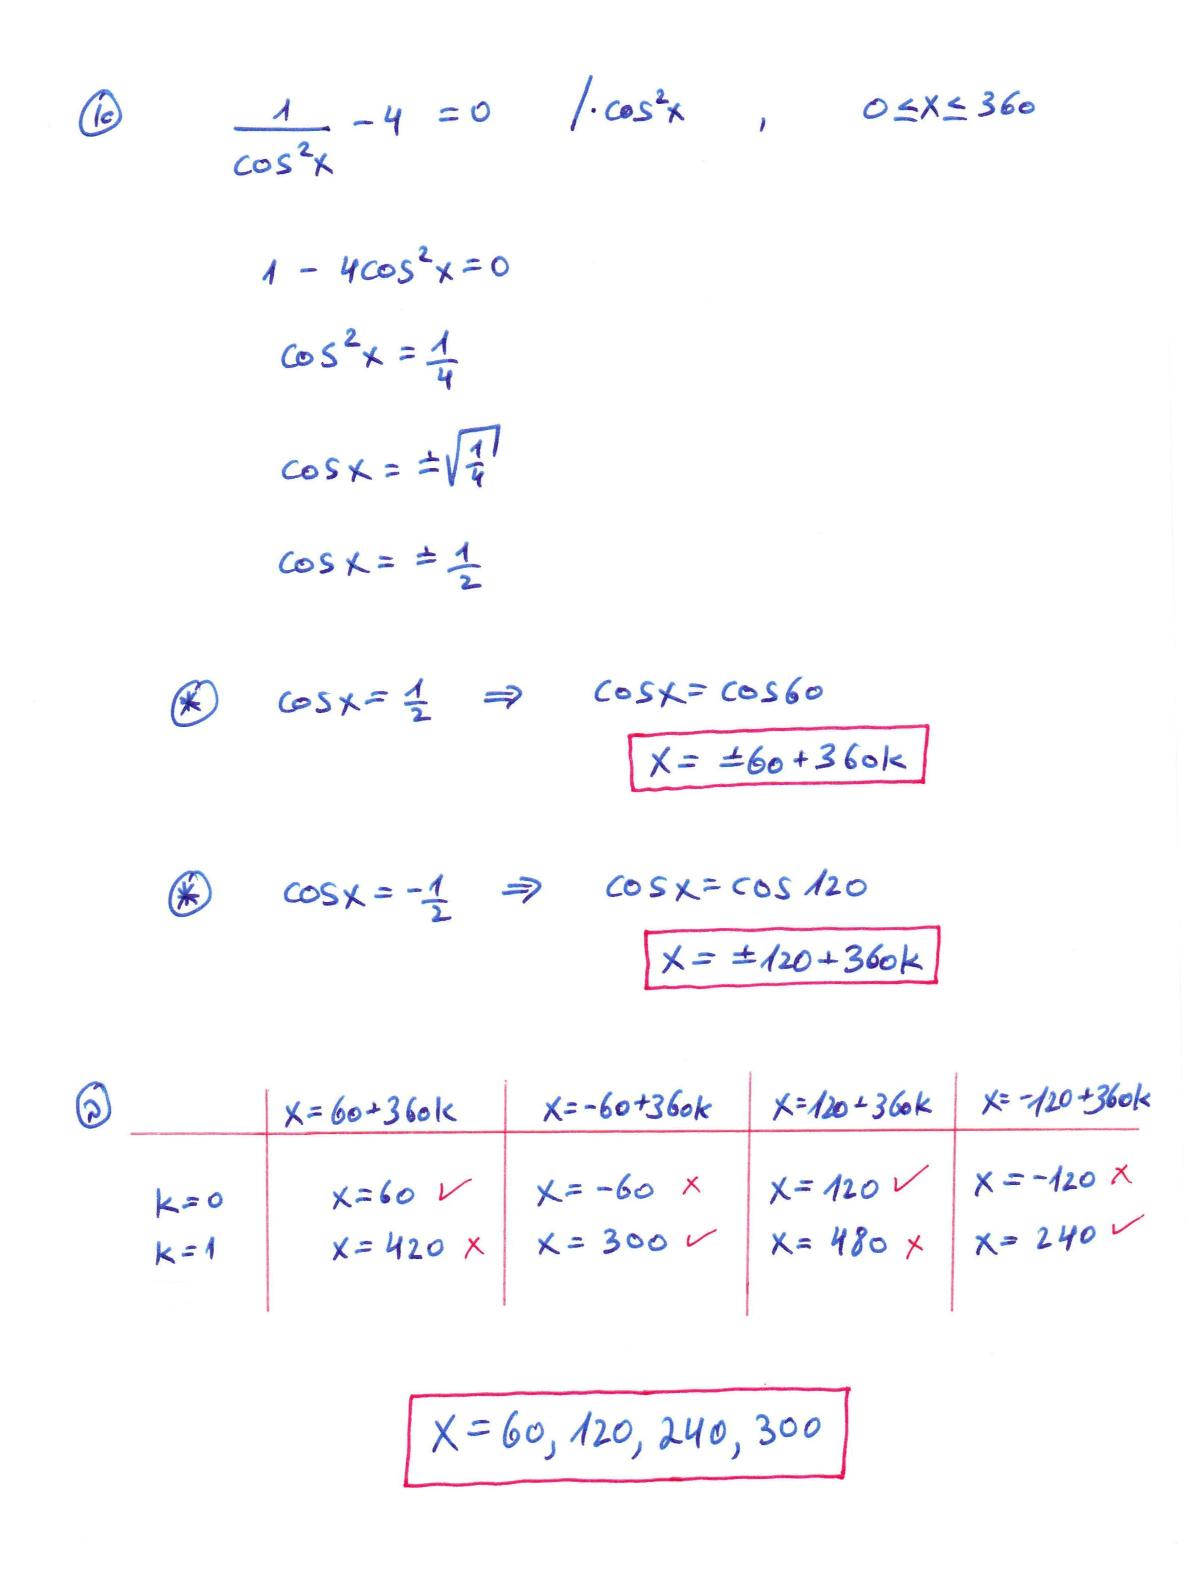 א 1/cos²x - 4 = 0 /·cos²x , 0≤x≤360
1 - 4cos²x = 0
cos²x = 1/4
cosx = ±√(1/4)
cosx = ±1/2
* cosx = 1/2 ⇒ cosx = cos60
x = ±60+360k
* cosx = -1/2 ⇒ cosx = cos120
x = ±120+360k
ב x=60+360k x=-60+360k x=120+360k x=-120+360k
k=0 x=60 ✓ x=-60 x x=120 ✓ x=-120 x
k=1 x=420 x x=300 ✓ x=480 x x=240 ✓
x=60, 120, 240, 300